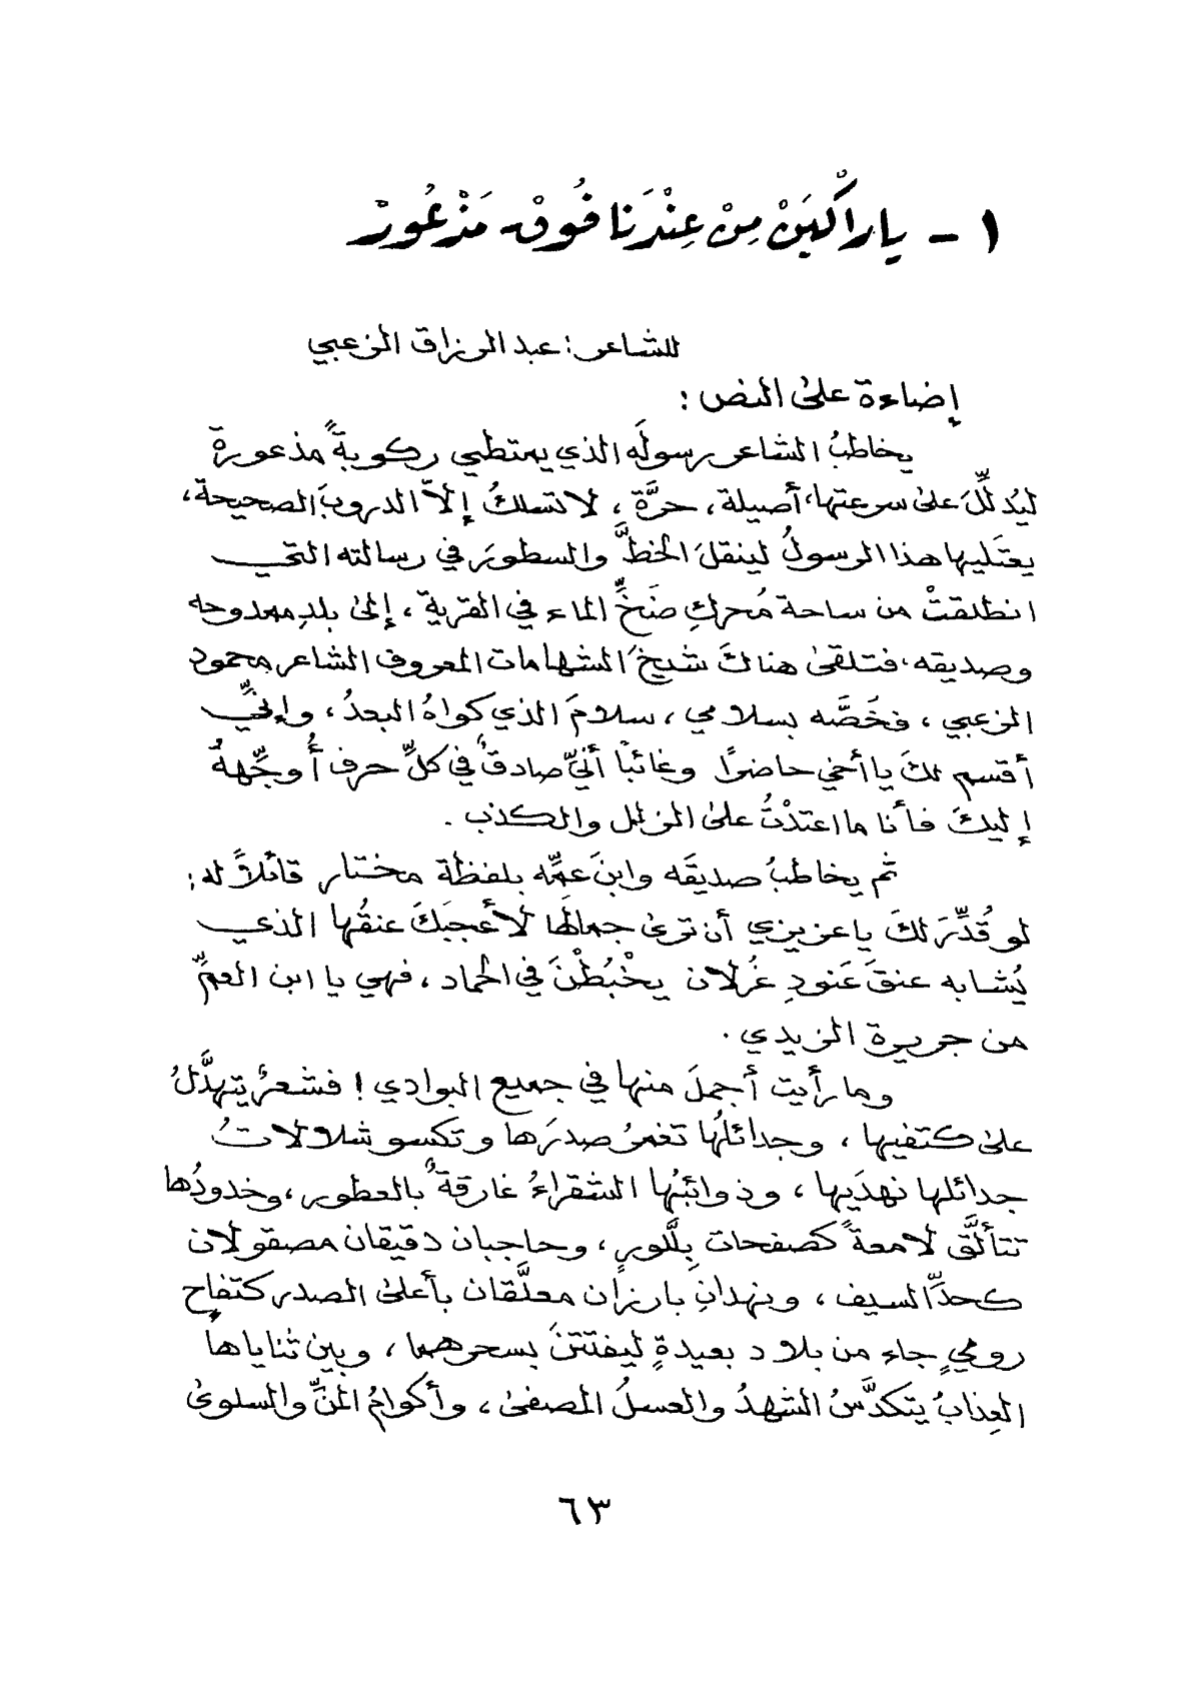 ١ - ياراْكبَنْ مِنْ عِنْدَنا فُوقْ مَذْعُورْ
للشاعر: عبد الرزاق الزعبي
إضاءة على النص :
يخاطبُ الشاعر رسولَه الذي يمتطي ركوبةً مذعورة
ليُدلِّلَ على سرعتها، أصيلة، حرَّة، لا تسلكُ إلاّ الدروبَ الصحيحة،
يعتَليها هذا الرسولُ لينقلَ الخطَّ والسطورَ في رسالته التي
انطلقتْ من ساحة مُحركِ ضَخِّ الماء في القرية، إلى بلدِ ممدوحه
وصديقه، فتلقى هناكَ شيخَ الشهامات المعروف الشاعر محمود
الزعبي، فخَصَّه بسلامي، سلامَ الذي كواهُ البعدُ، وإنِّي
أقسم لكَ يا أخي حاضرًا وغائبًا أنّي صادقٌ في كلِّ حرف أُوجِّههُ
إليكَ فأنا ما اعتدْتُ على الزلل والكذب .
ثم يخاطبُ صديقَه وابنَ عمِّه بلفظة مختار قائلاً له:
لو قُدِّرَ لكَ يا عزيزي أن ترى جمالَها لأعجبَكَ عنقُها الذي
يُشابه عنقَ عَنودِ غُزلان يخْبُطْنَ في الحماد، فهي يا ابن العمِّ
من جريرة الزيدي .
وما رأيت أجملَ منها في جميع البوادي ! فشعرٌ يتهدَّلُ
على كتفيها، وجدائلُها تغمرُ صدرَها وتكسو شلالاتُ
جدائلها نهدَيها، وذوائبُها الشقراءُ غارقةٌ بالعطور، وخدودُها
تتألَّق لامعةً كصفحات بِلَّورٍ، وحاجبان دقيقان مصقولان
كحدِّ السيف، ونهدانِ بارزان معلَّقان بأعلى الصدر كتفاحٍ
روميٍ جاء من بلاد بعيدةٍ ليفتتنَ بسحرهما، وبين ثناياها
العِذابُ يتكدَّسُ الشهدُ والعسلُ المصفى، وأكوامُ المنِّ والسلوى
٦٣